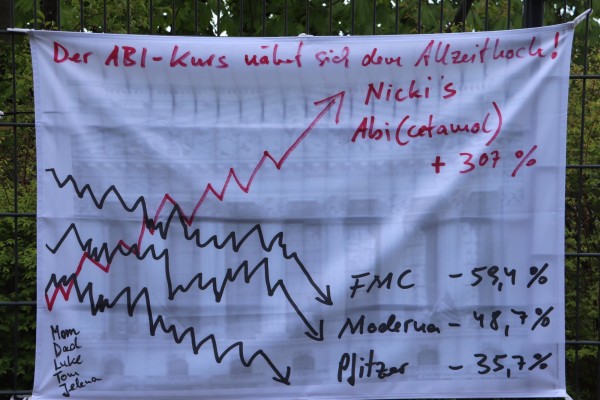 Der ABI-Kurs nähert sich dem Allzeithoch!
Nicki's
Abi(cetamol)
+ 307 %
FMC - 59,4 %
Moderna - 48,7 %
Pfitzer - 35,7 %
Mom
Dad
Luke
Tom
Jelena